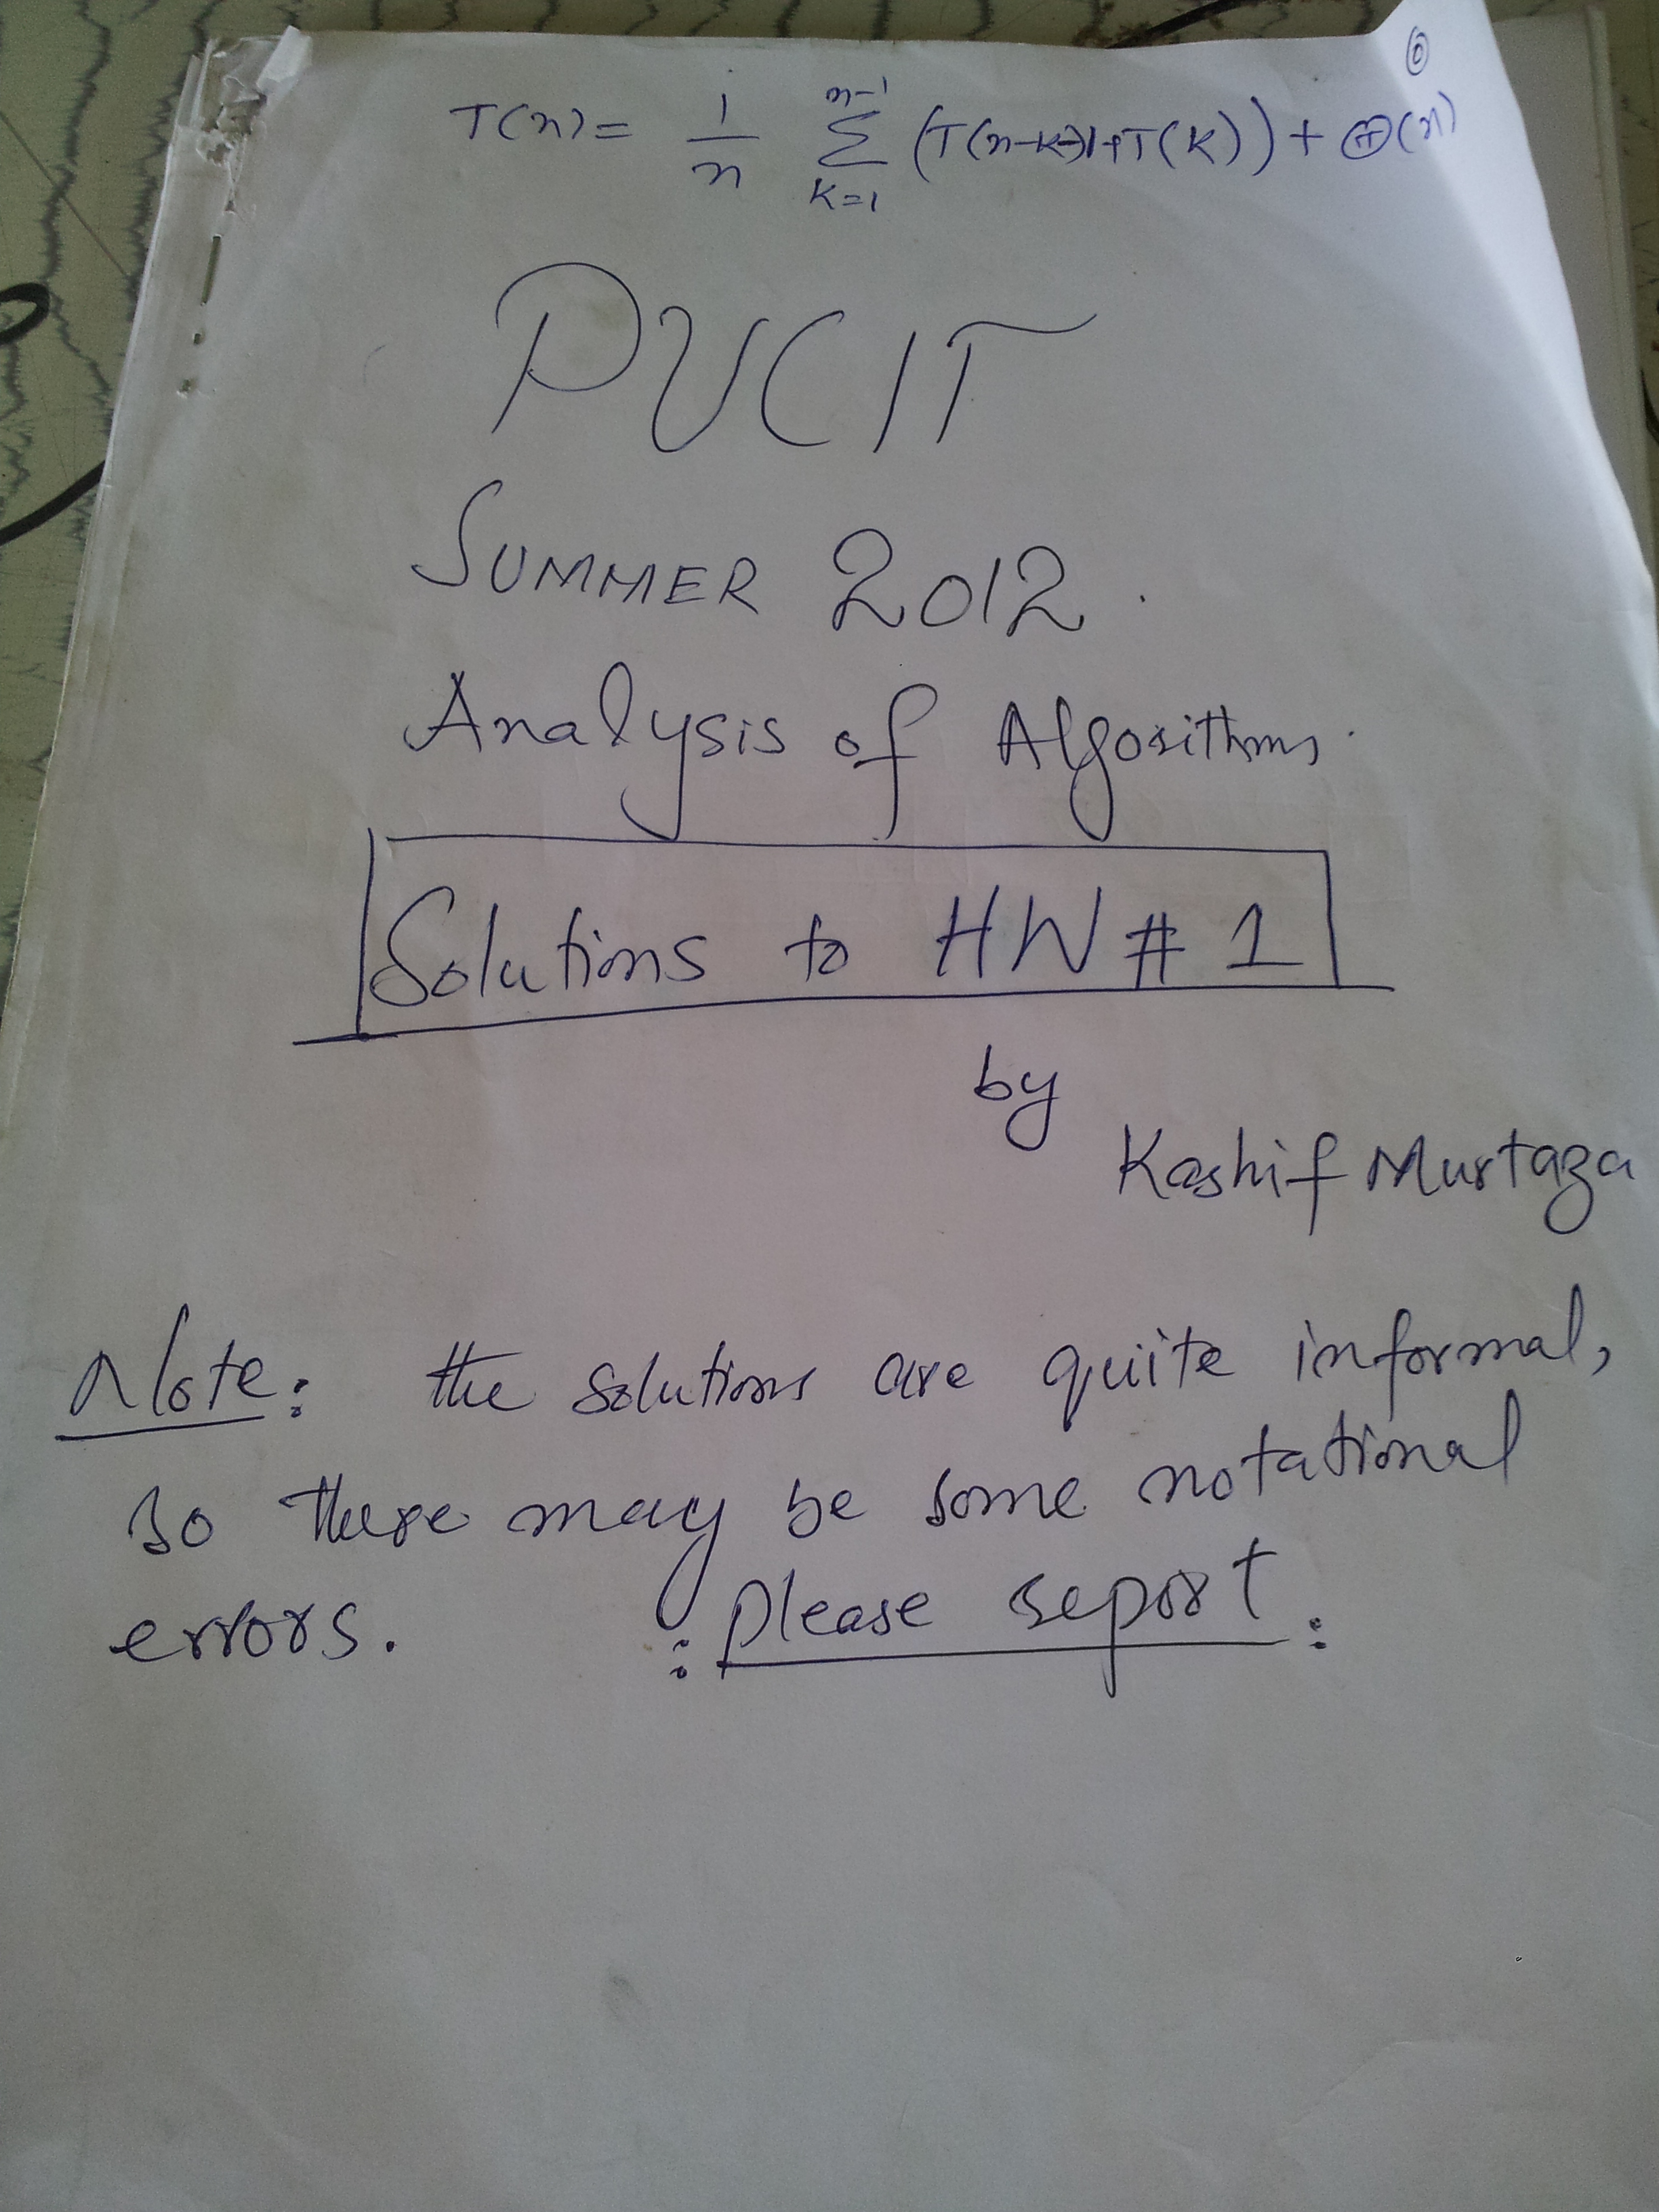 ⓪
T(n) = 1/n n-1 Σ k=1 (T(n-k-1)+T(k)) + Θ(n)
PUCIT
SUMMER 2012.
Analysis of Algorithms.
Solutions to HW # 1
by
Kashif Murtaza
Note: the solutions are quite informal,
so there may be some notational
errors. : please report :